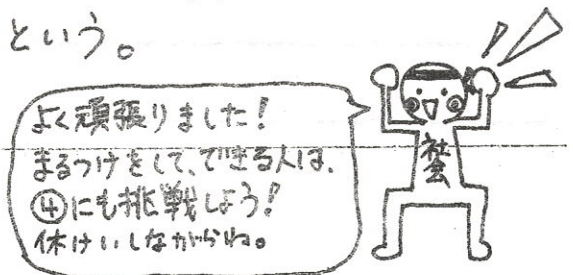 という。
よく頑張りました！
まるつけをして、できる人は、
④にも挑戦しよう！
休けいしながらね。
社会